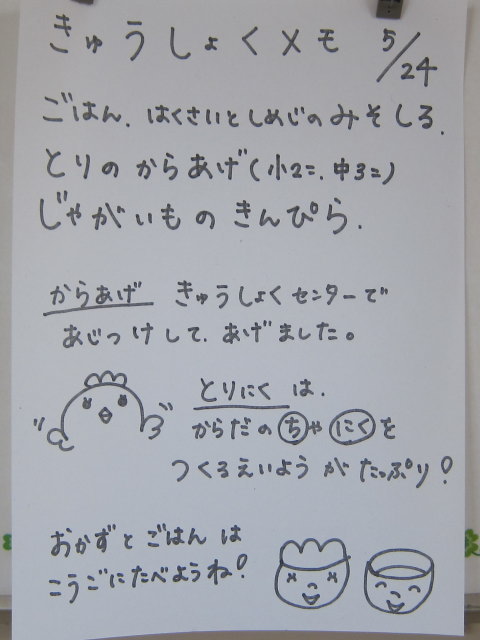 きゅうしょくメモ 5/24
ごはん. はくさいとしめじのみそしる.
とりのからあげ(小2こ. 中3こ)
じゃがいものきんぴら.
からあげ きゅうしょくセンターで
あじつけして. あげました。
とりにくは.
からだのちやにくを
つくるえいようがたっぷり!
おかずとごはんは
こうごにたべようね!